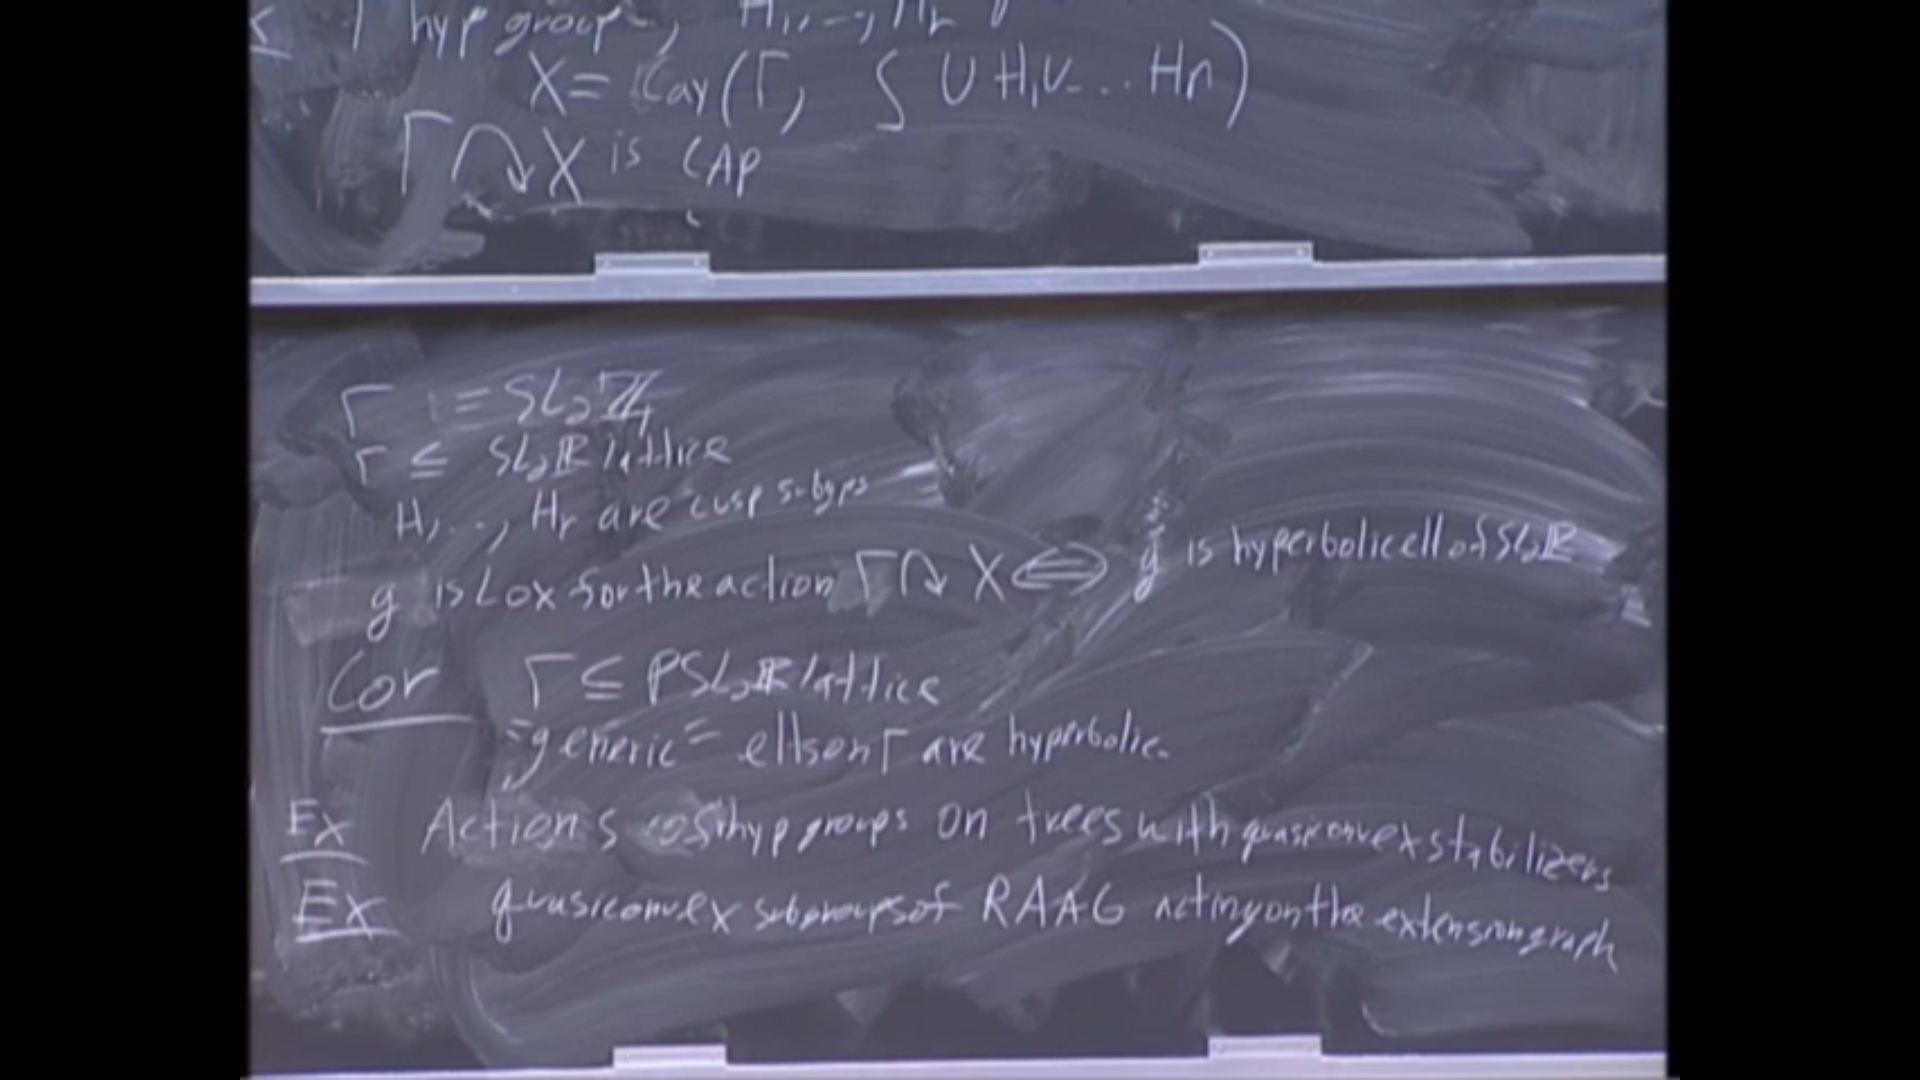 Γ hyp group, H1, ..., Hr
X = Cay(Γ, S ∪ H1 ∪ ... Hn)
Γ ↷ X is CAP
Γ := SL2ℤ
Γ ≤ SL2ℝ lattice
H1, .., Hr are cusp subgps
g is Lox for the action Γ ↷ X ⇔ g is hyperbolic ell of SL2ℝ
Cor Γ ≤ PSL2ℝ lattice
"generic" elts on Γ are hyperbolic.
Ex Actions of hyp groups on trees with quasiconvex stabilizers
Ex quasiconvex subgroups of RAAG acting on the extension graph